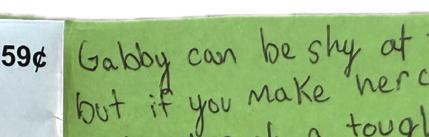 59¢
Gabby can be shy at
but if you make her
tough